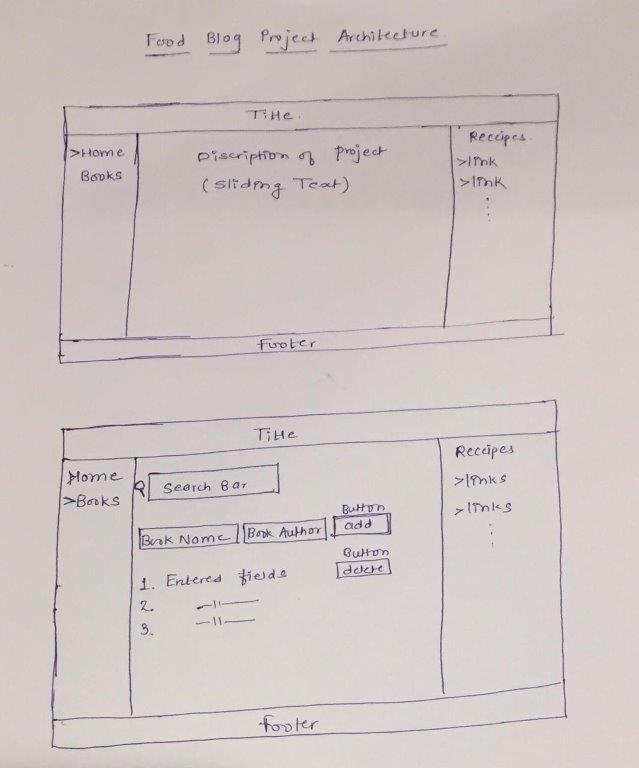 Food Blog Project Architecture
Title
>Home
Books
Discription of project
(Sliding Text)
Reccipes
>link
>link
Footer
Title
Home
>Books
Search Bar
Book Name
Book Author
Button
add
Button
delete
1. Entered fields
2. —11—
3. —11—
Reccipes
>links
>links
Footer